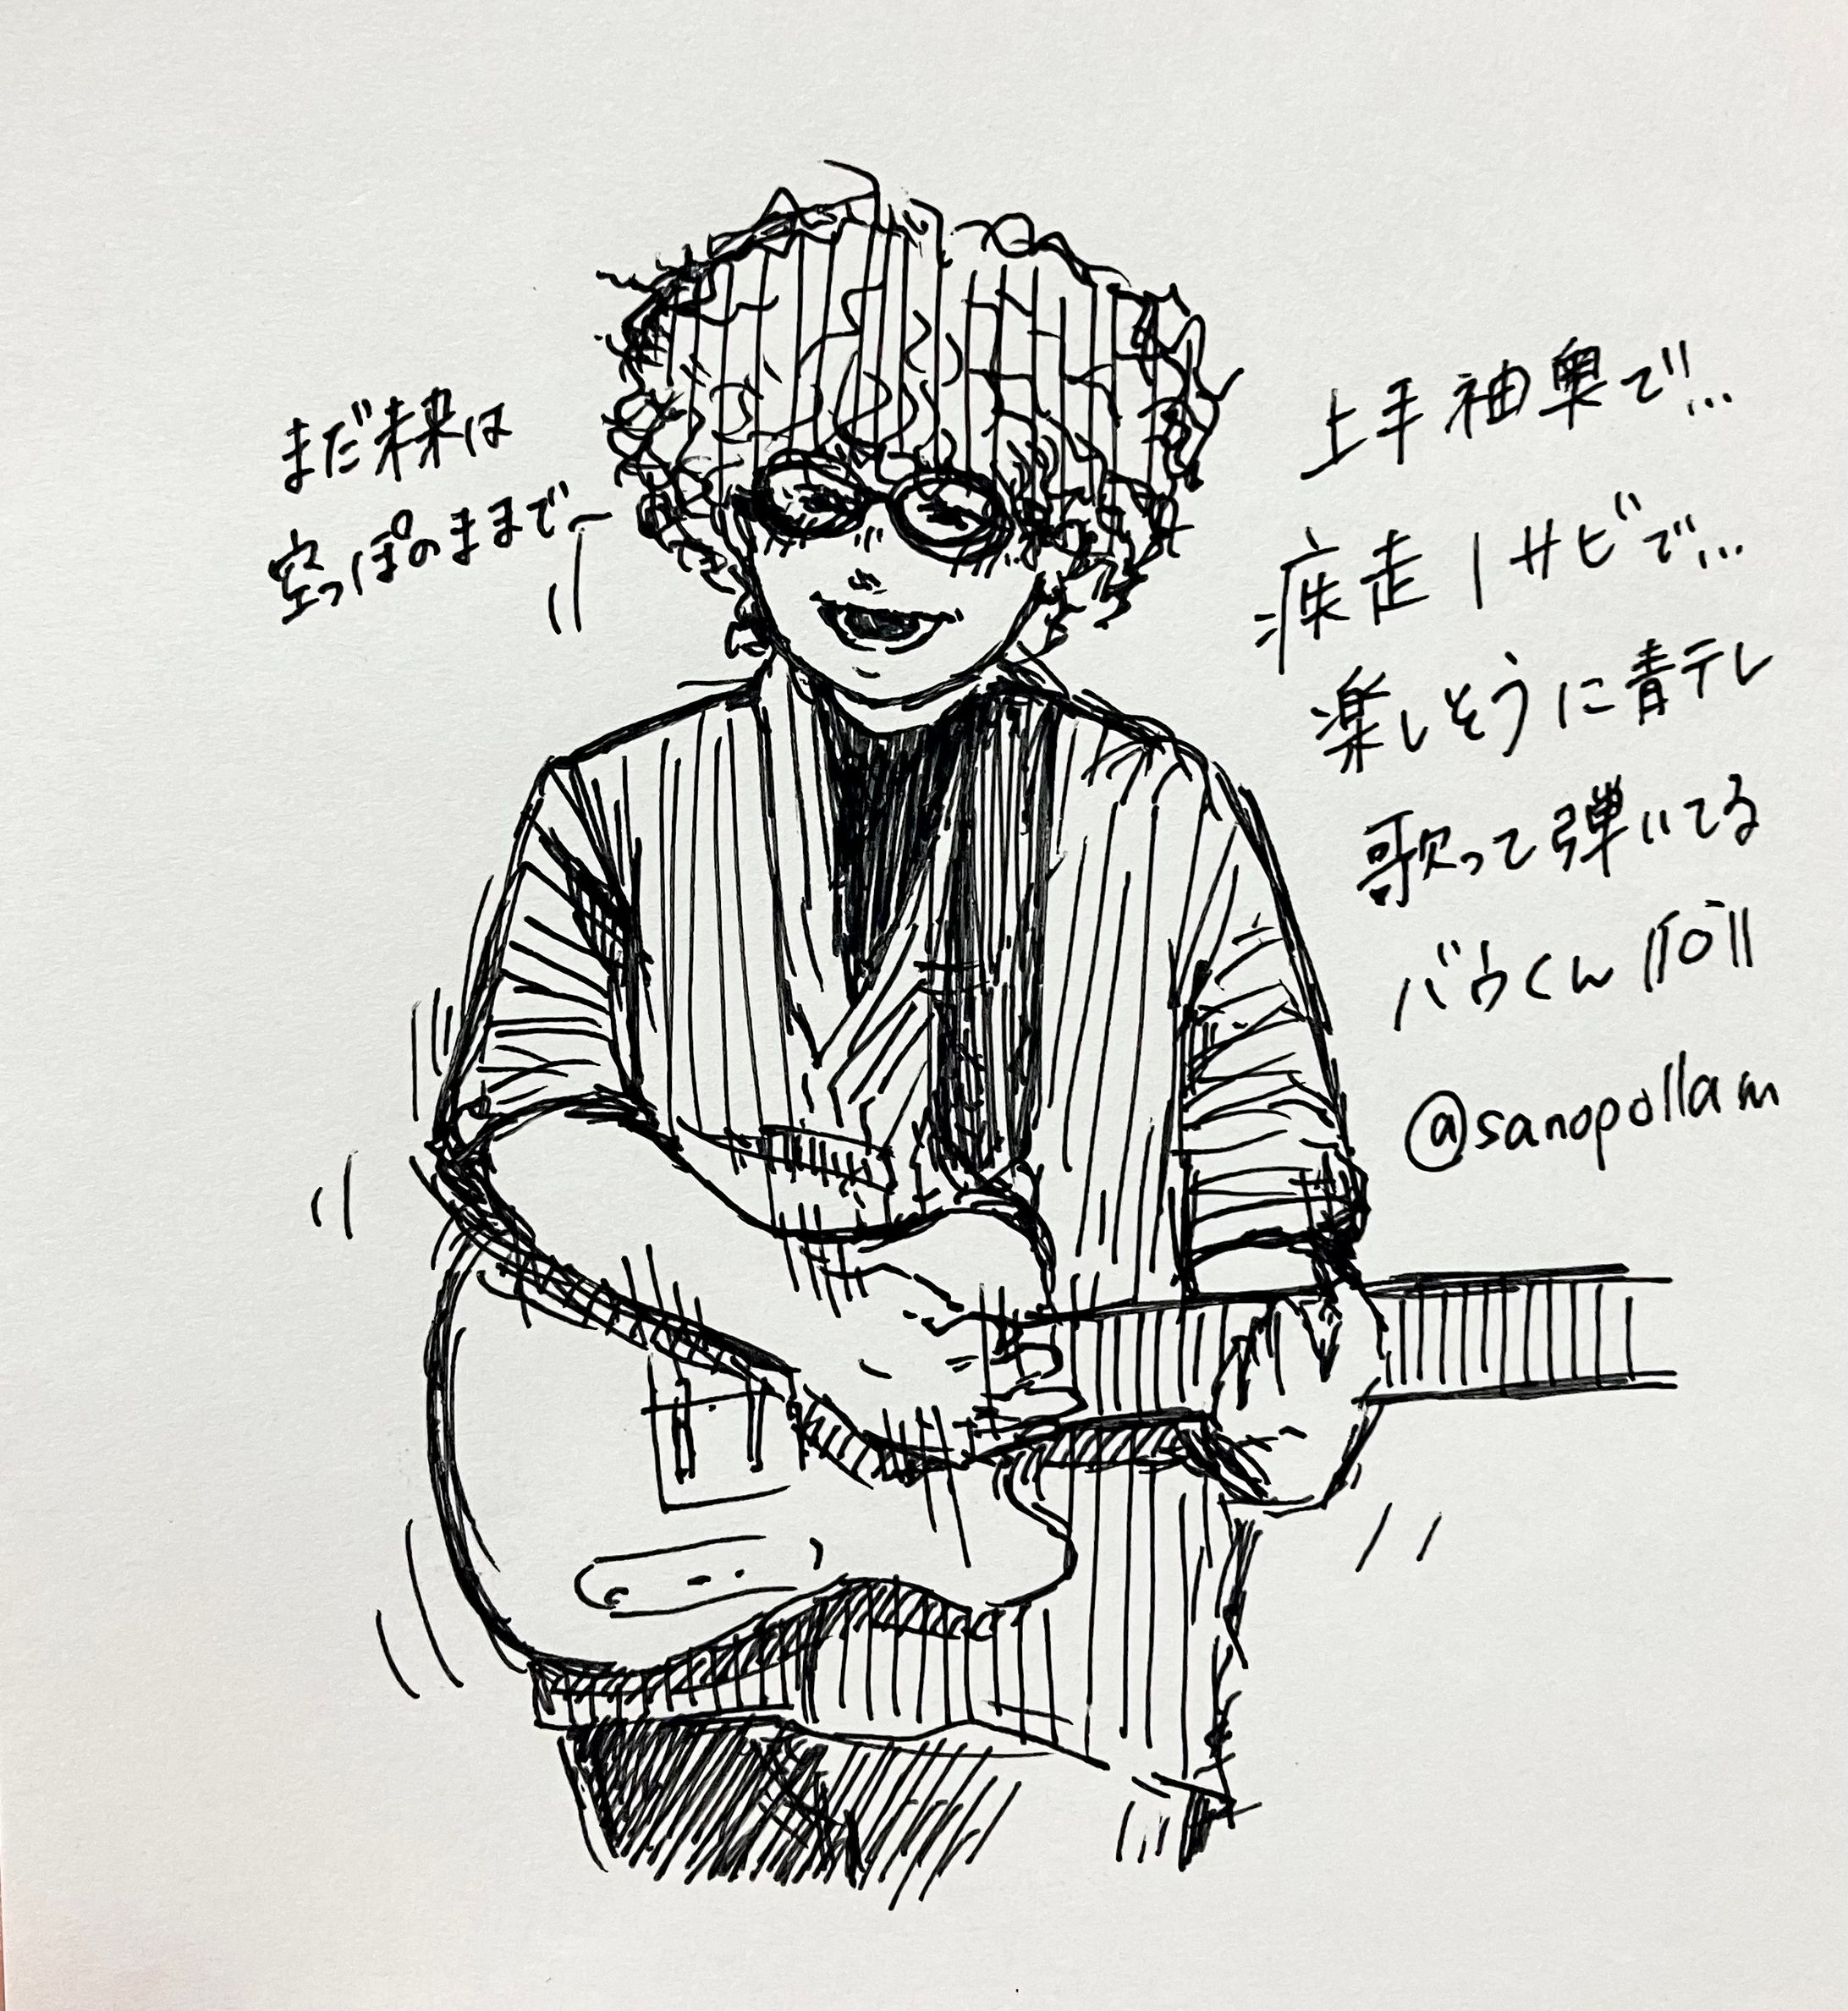 まだ未来は
空っぽのままで
上手袖奥で…
疾走1サビで…
楽しそうに青テレ
歌って弾いてる
バウくん
@sanopollam